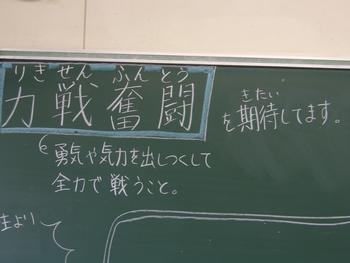 りきせんふんとう
力戦奮闘
きたい
を期待してます。
勇気や気力を出しつくして
全力で戦うこと。
生より